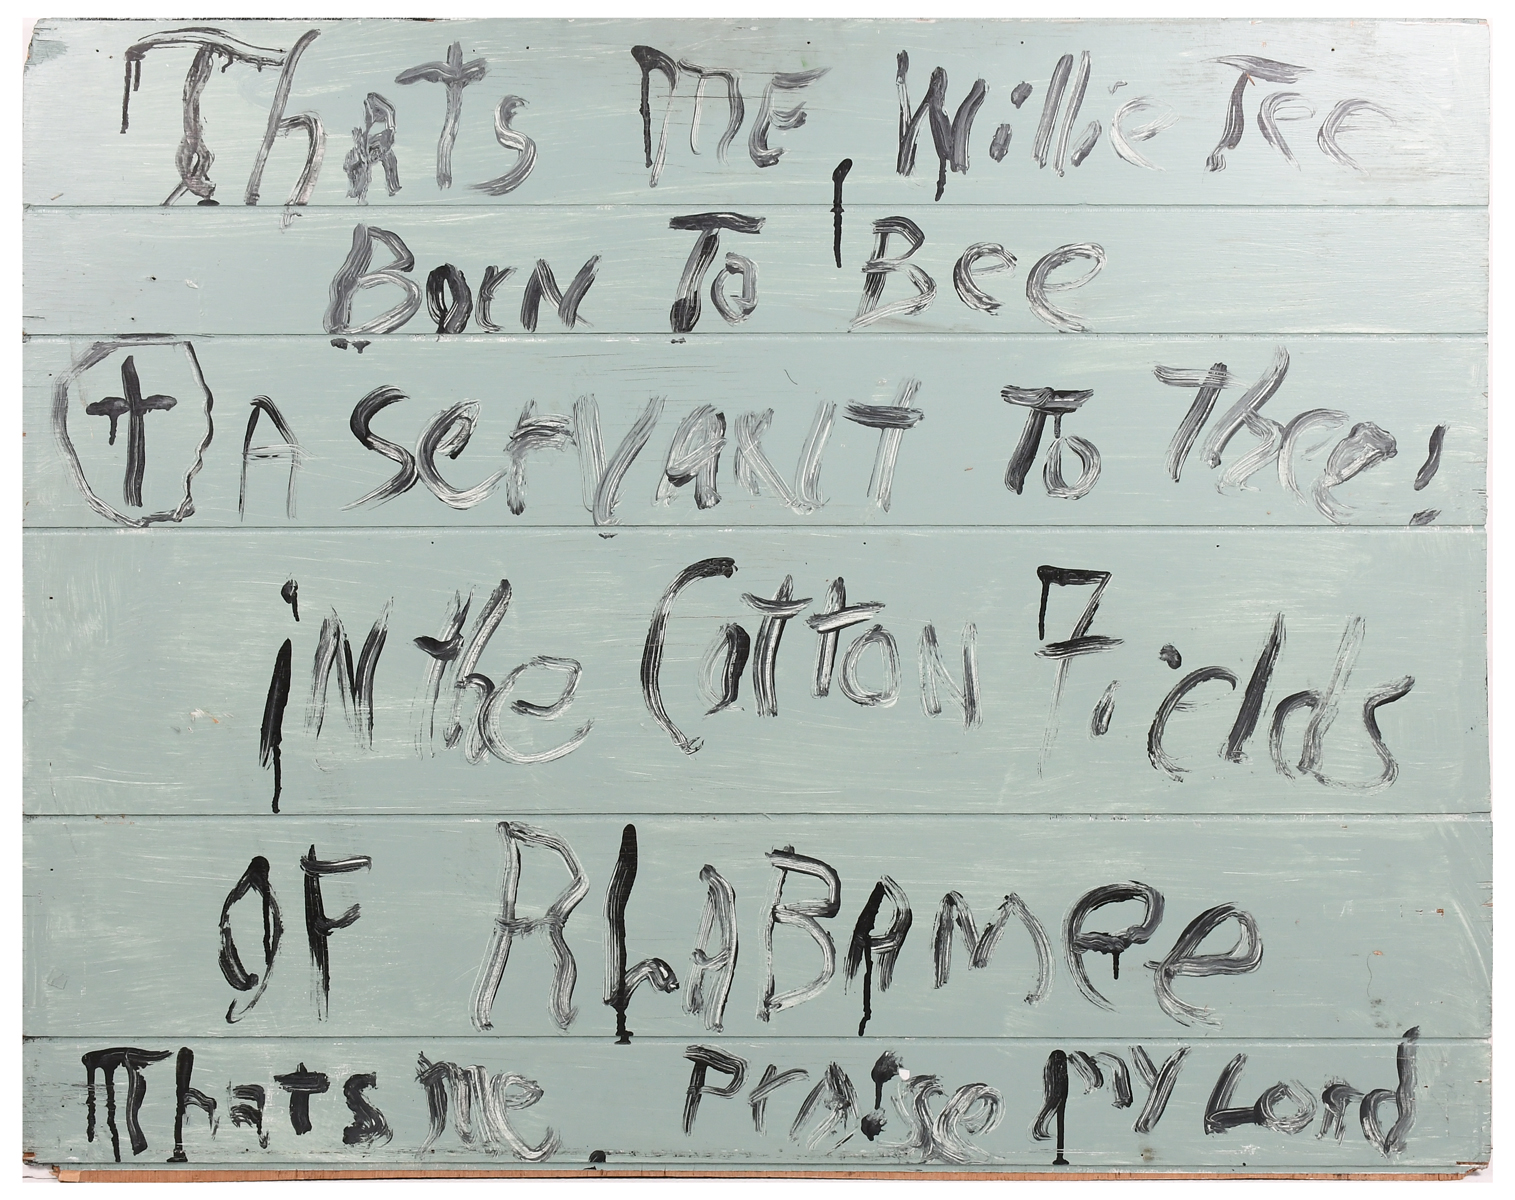 Thats ME Willie Tee
Born To 'Bee
A Servant To Thee!
in the Cotton Fields
OF ALABAMee
Thats me Praise My Lord